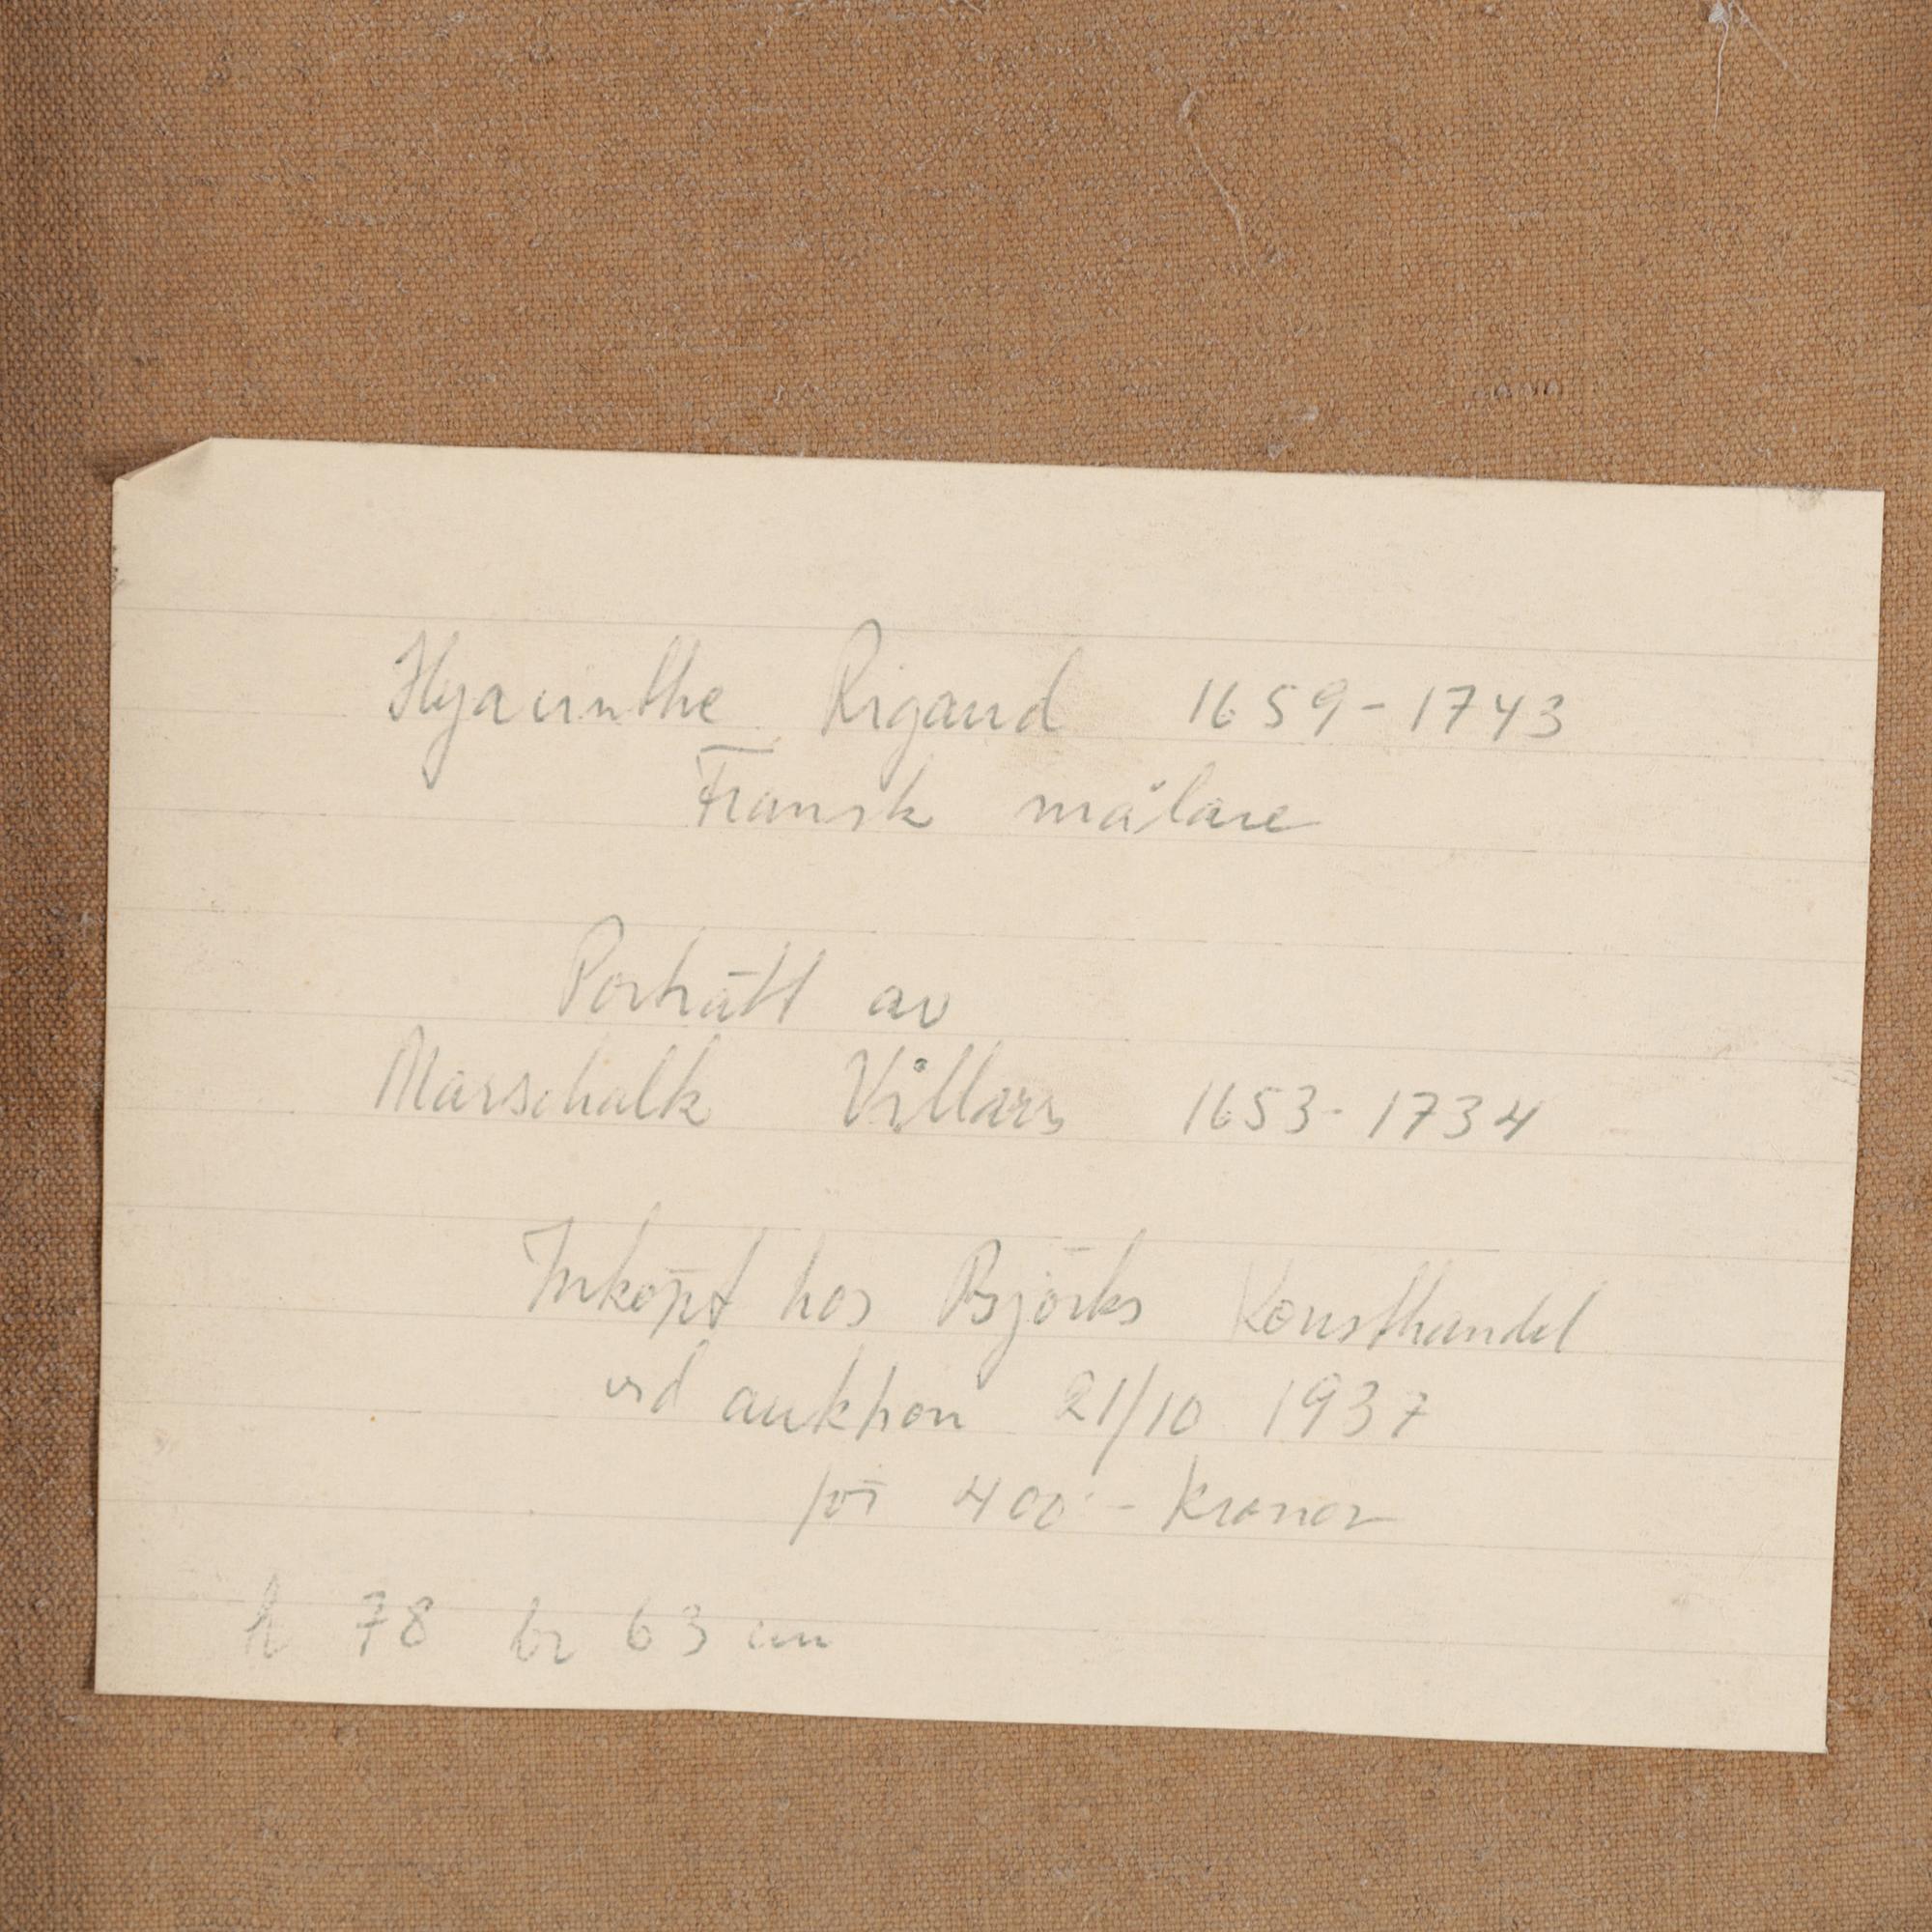 Hyacinthe Rigaud 1659-1743
Fransk målare
Porträtt av
Marschalk Villars 1653-1734
Inköpt hos Björks Konsthandel
vid auktion 21/10 1937
för 400:- Kronor
h 78 br 63 cm